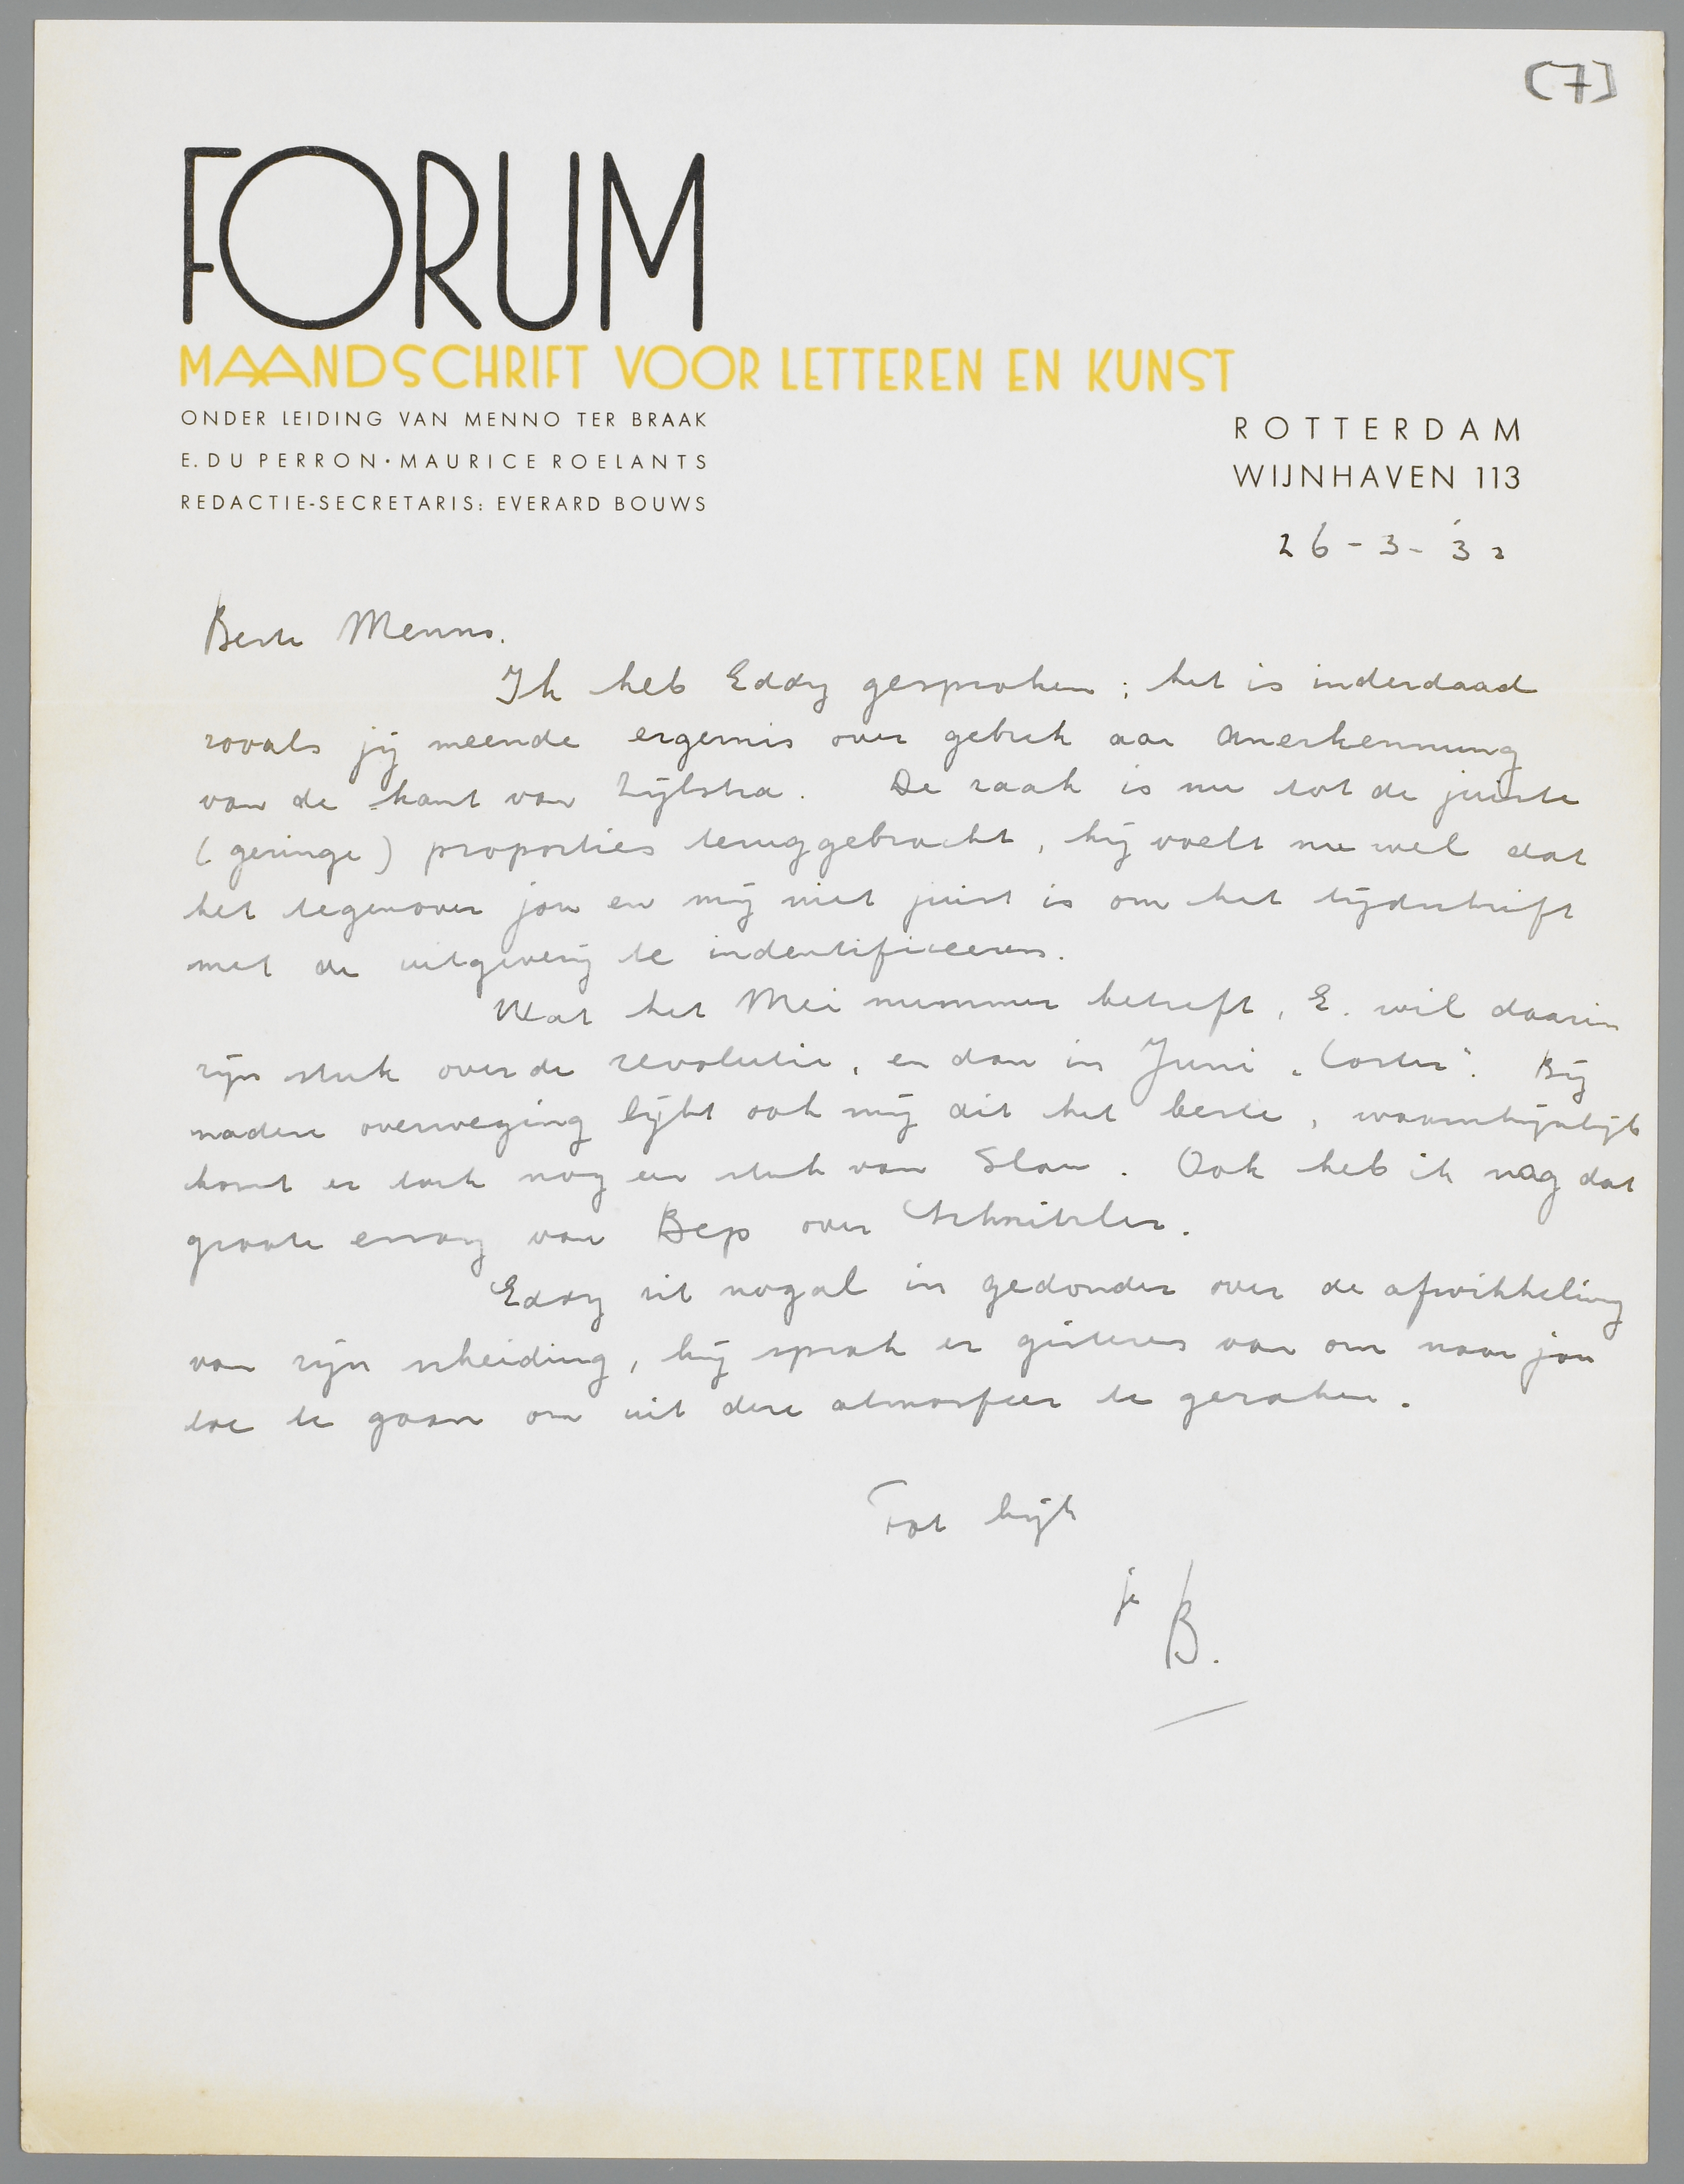 [7]
FORUM
MAANDSCHRIFT VOOR LETTEREN EN KUNST
ONDER LEIDING VAN MENNO TER BRAAK
E. DU PERRON · MAURICE ROELANTS
REDACTIE-SECRETARIS: EVERARD BOUWS
ROTTERDAM
WIJNHAVEN 113
26-3-'32
Beste Menno.
Ik heb Eddy gesproken; het is inderdaad
zooals jij meende ergernis over gebrek aan Anerkennung
van de kant van Zijlstra. De zaak is nu tot de juiste
(geringe) proporties teruggebracht, hij voelt nu wel dat
het tegenover jou en mij niet juist is om het tijdschrift
met de uitgeverij te indentificeeren.
Wat het Mei nummer betreft, E. wil daarin
zijn stuk over de revolutie, en dan in Juni „Coster". Bij
nadere overweging lijkt ook mij dit het beste, waarschijnlijk
komt er toch nog een stuk van Slau. Ook heb ik nog dat
groote essay van Bep over Schnitzler.
Eddy zit nogal in gedonder over de afwikkeling
van zijn scheiding, hij sprak er gisteren van om naar jou
toe te gaan om uit deze atmosfeer te geraken.
Tot kijk
je B.